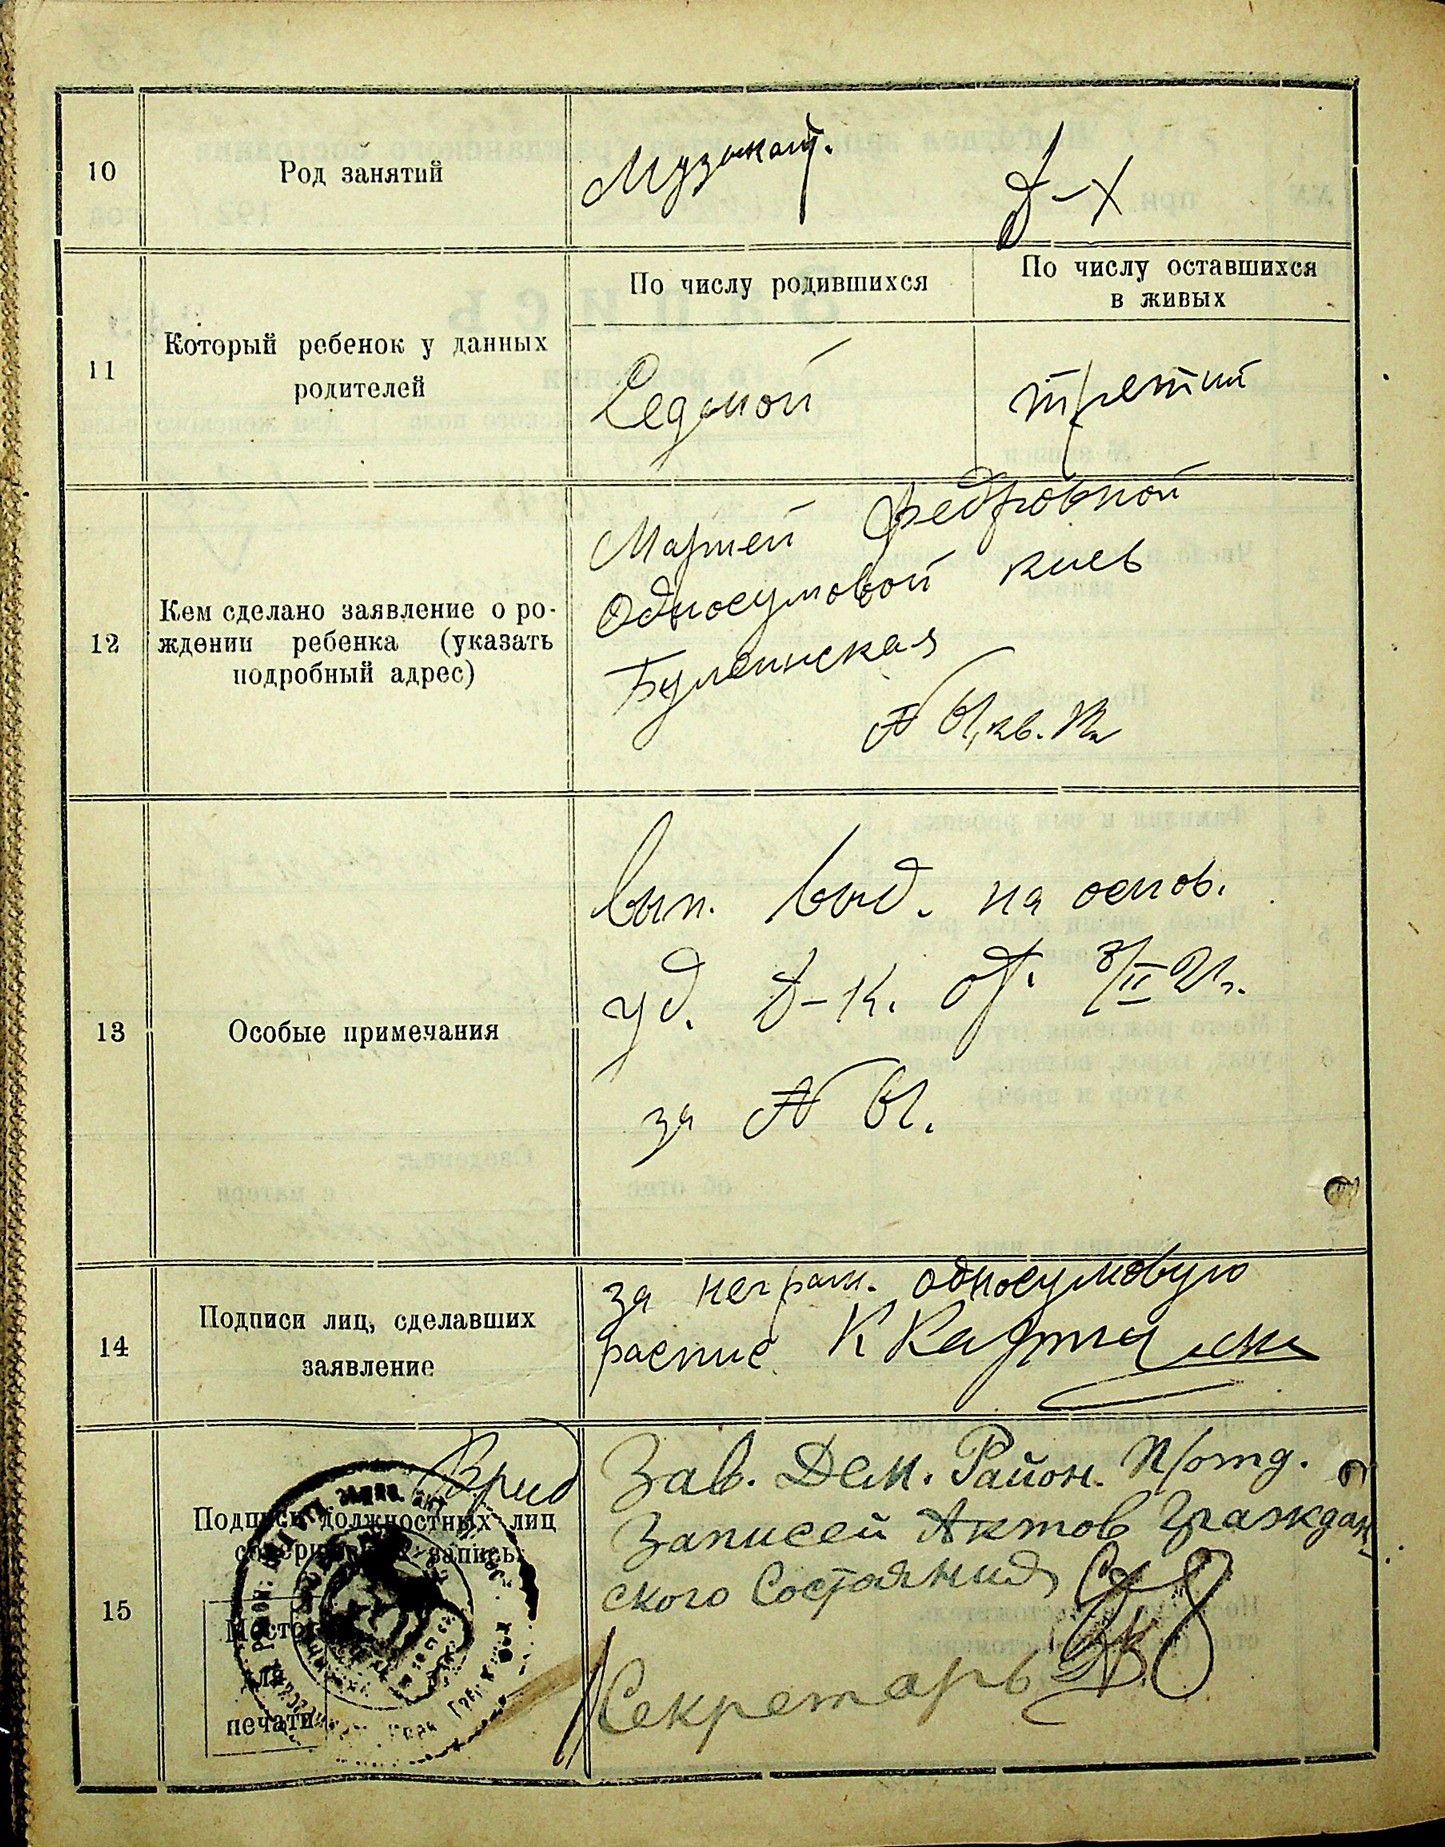 10
Род занятий
Музыкант.
д-х
11
Который ребенок у данных
родителей
По числу родившихся
По числу оставшихся
в живых
Седмой
третий
12
Кем сделано заявление о ро-
ждении ребенка (указать
подробный адрес)
Марией Федоровной
Односумовой Киев
№ 61, кв.
13
Особые примечания
вып. выд. на основ.
уд. Д-К. от. 8/II 21г.
за № 61.
14
Подписи лиц, сделавших
заявление
за неграм. односумовую
распис К
15
Подписи должностных лиц
запись
Место
для
печати
Врид
Зав. Дем. Район. П/отд.
Записей Актов Граждан-
ского Состояния
Секретарь